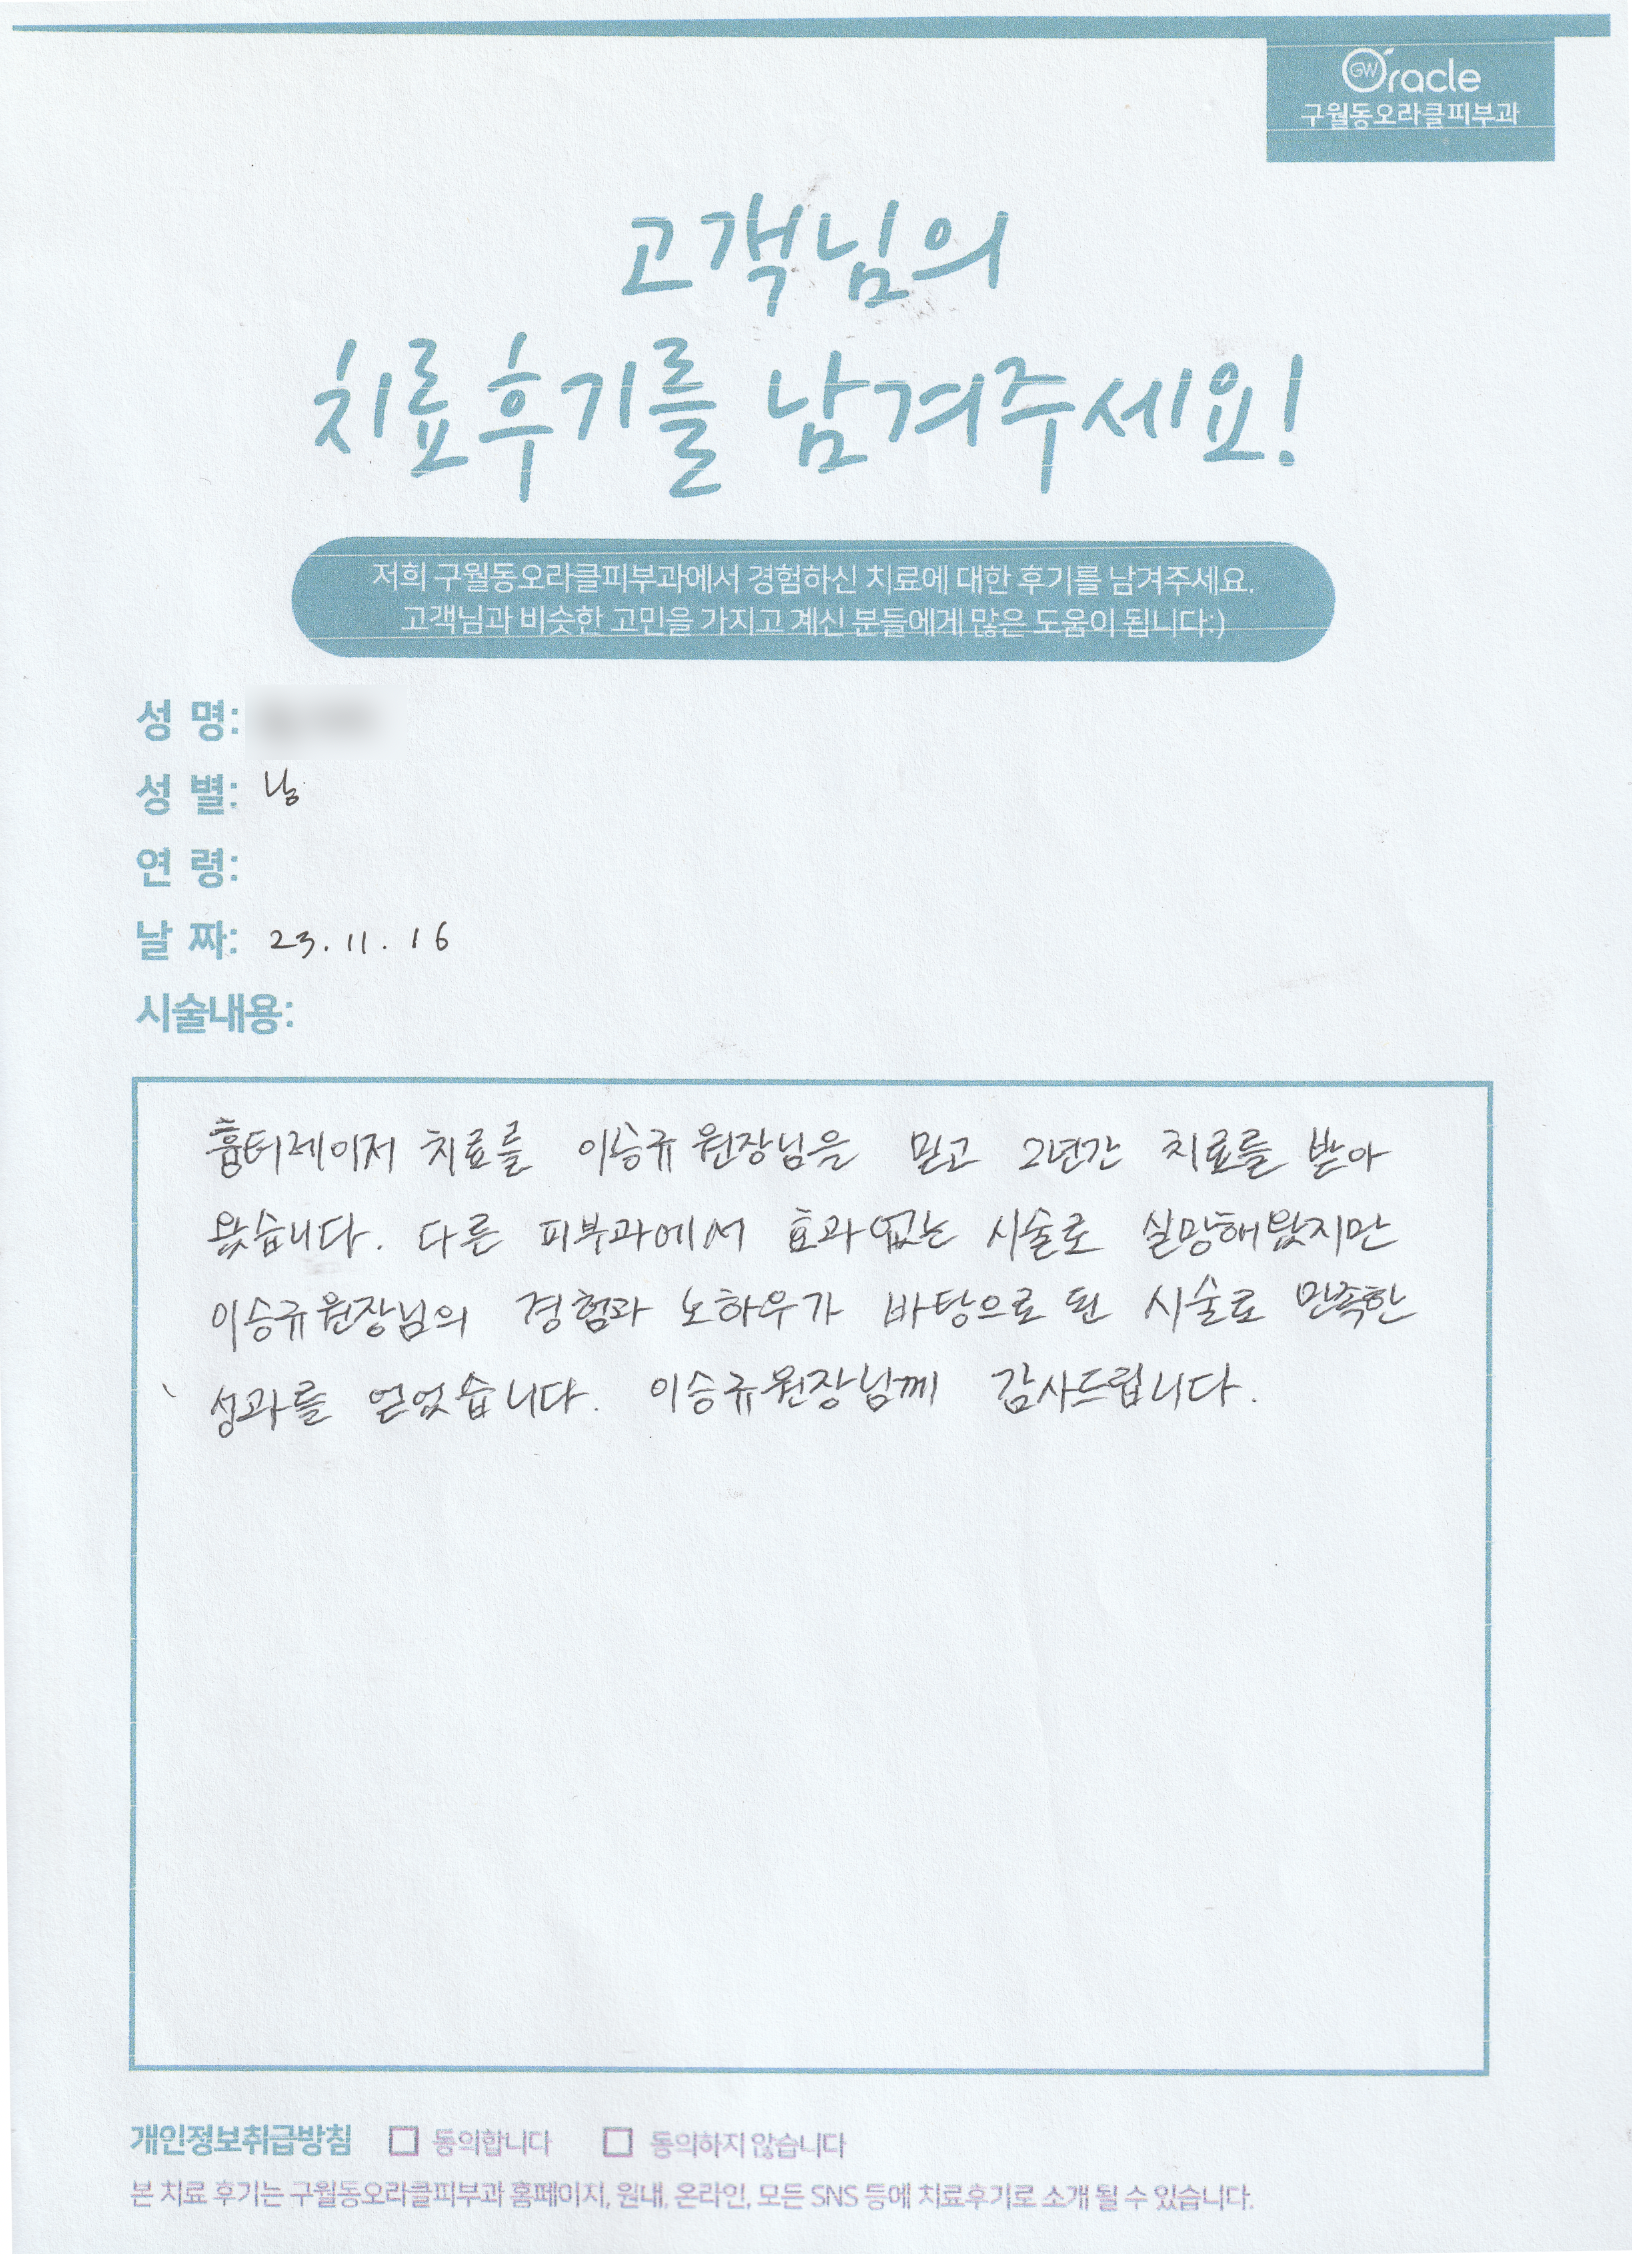 GW Oracle
구월동오라클피부과
고객님의
치료후기를 남겨주세요!
저희 구월동오라클피부과에서 경험하신 치료에 대한 후기를 남겨주세요.
고객님과 비슷한 고민을 가지고 계신 분들에게 많은 도움이 됩니다:)
성 명:
성 별: 남
연 령:
날 짜: 23. 11. 16
시술내용:
흉터레이저 치료를 이승규 원장님을 믿고 2년간 치료를 받아
왔습니다. 다른 피부과에서 효과없는 시술로 실망해왔지만
이승규원장님의 경험과 노하우가 바탕으로 된 시술로 만족한
성과를 얻었습니다. 이승규원장님께 감사드립니다.
개인정보취급방침 □ 동의합니다 □ 동의하지 않습니다
본 치료 후기는 구월동오라클피부과 홈페이지, 원내, 온라인, 모든 SNS 등에 치료후기로 소개 될 수 있습니다.